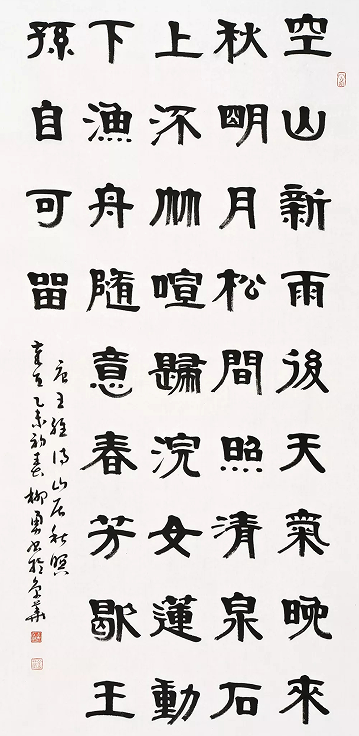 空山新雨後天氣晚來
秋明月松間照清泉石
上流竹喧歸浣女蓮動
下漁舟隨意春芳歇王
孫自可留
唐王維詩山居秋暝
歲在乙未初春柳勇書於金華